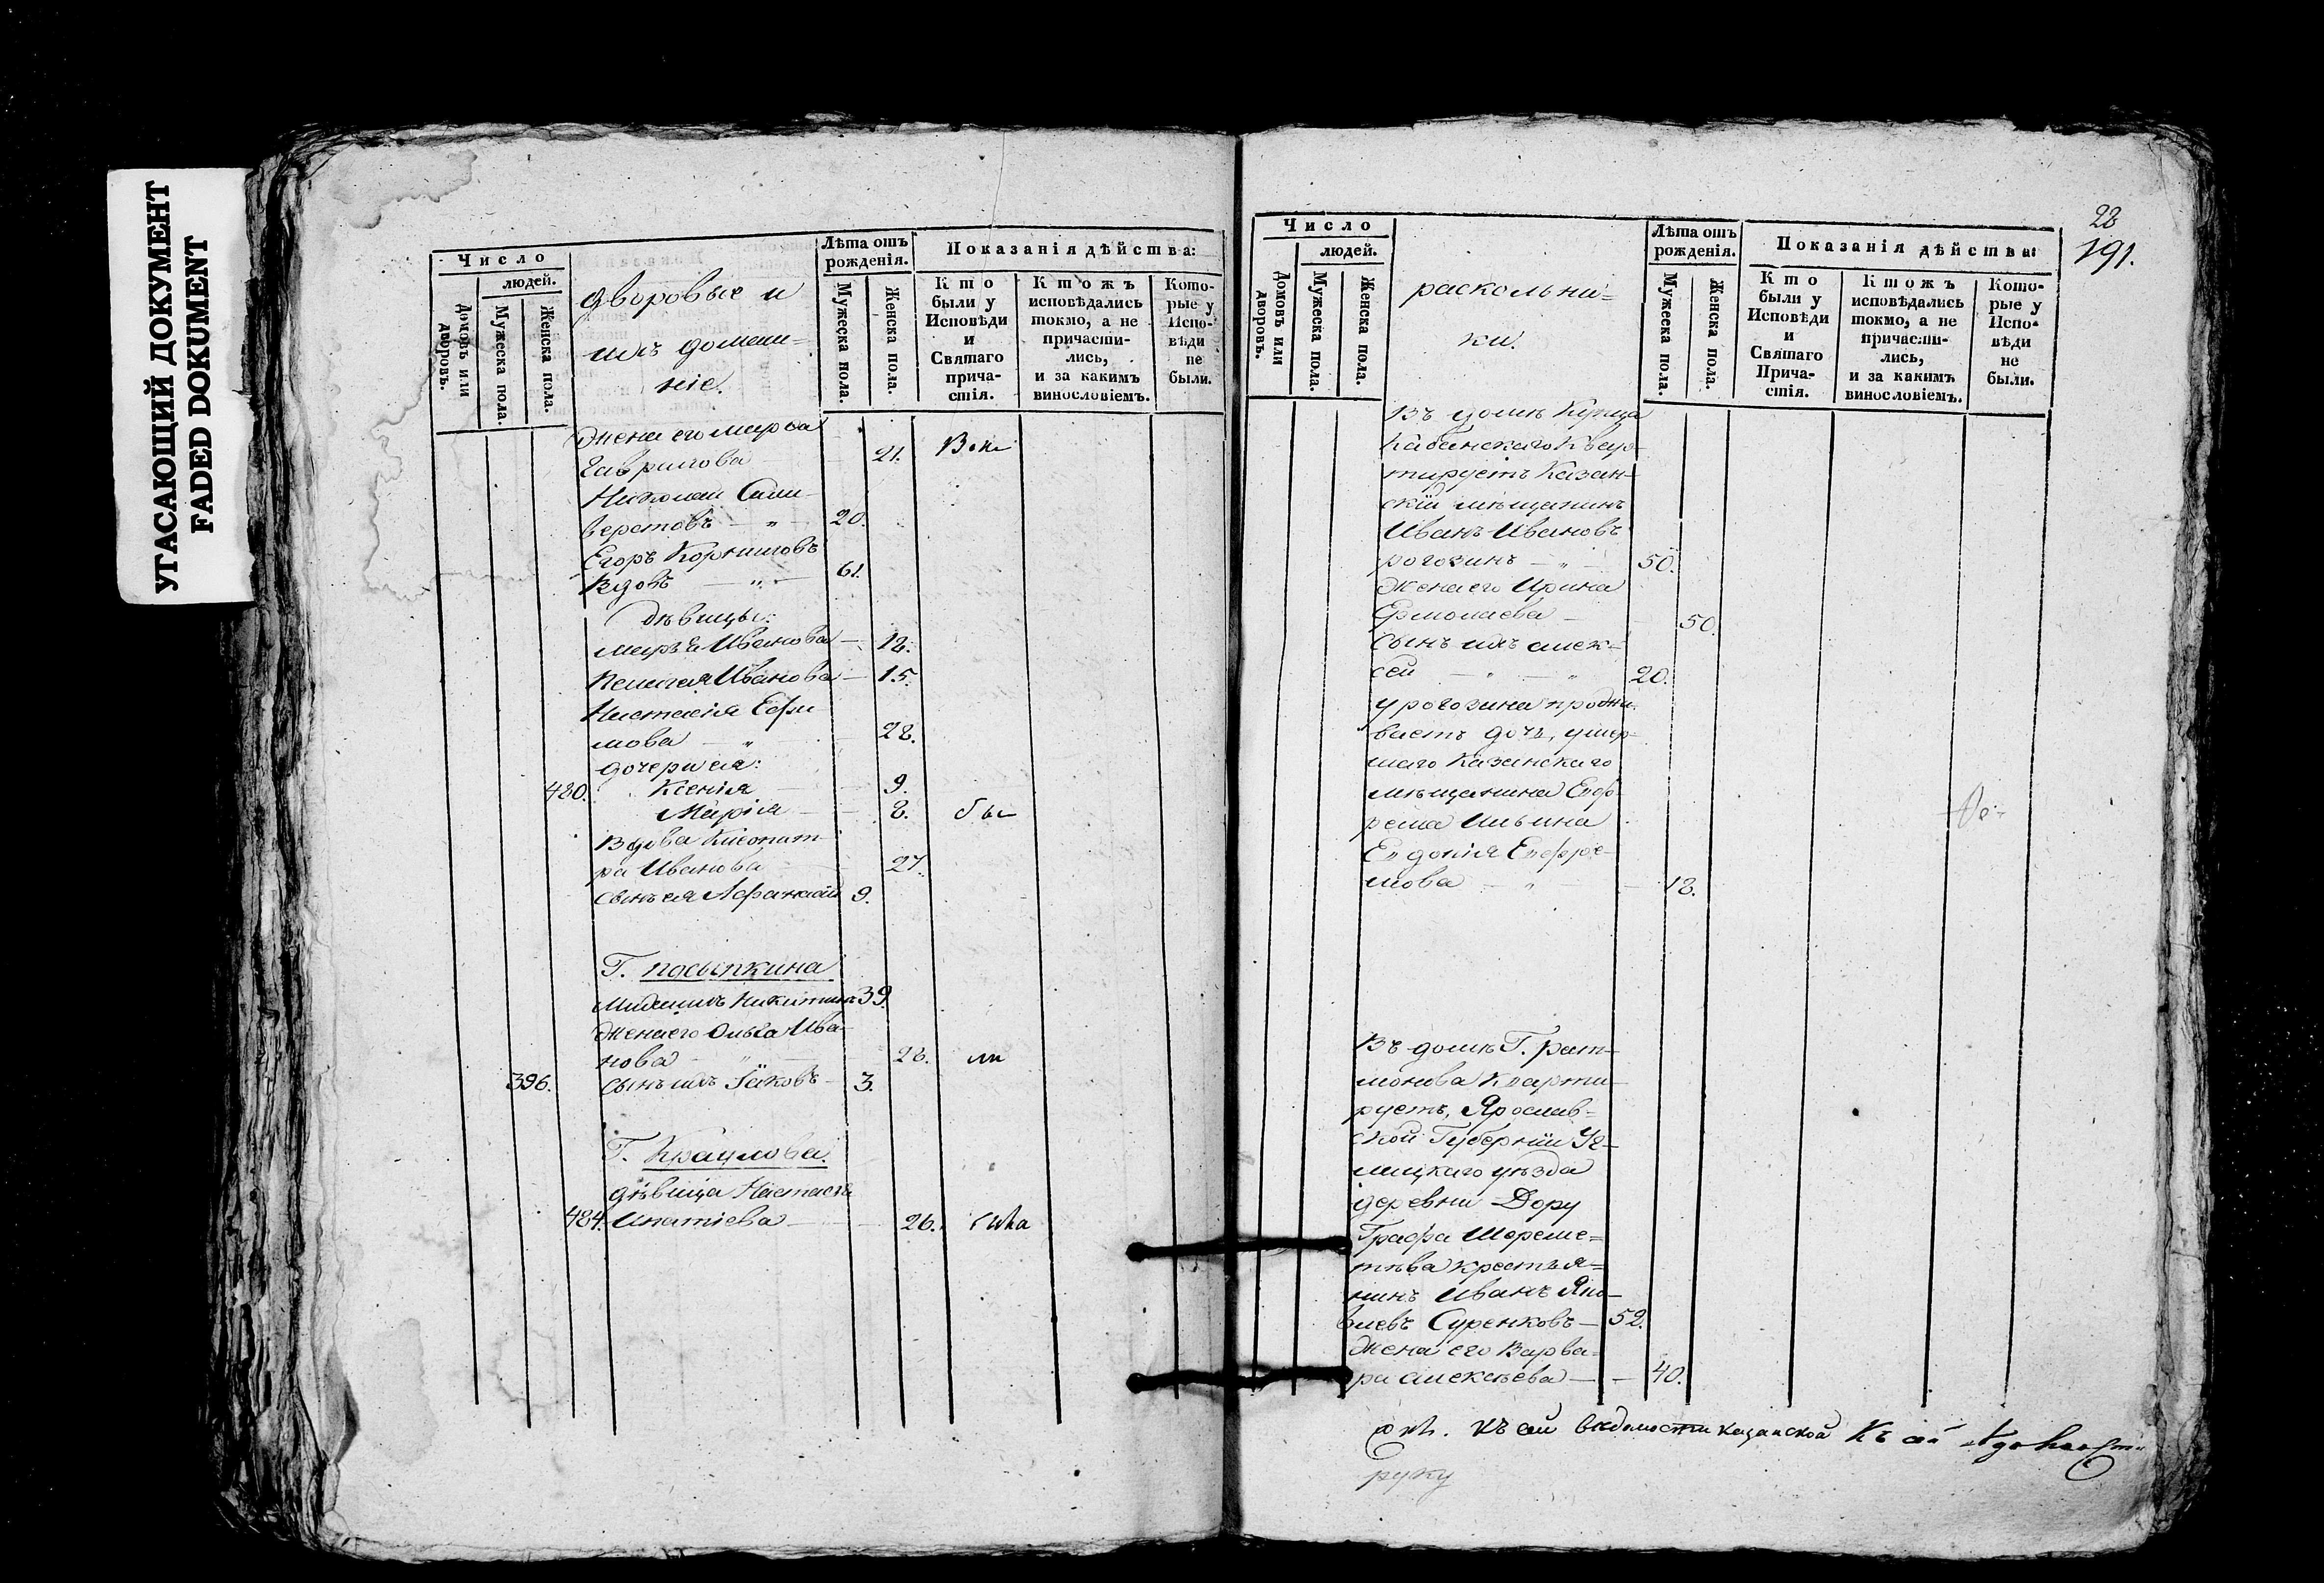 УГАСАЮЩИЙ ДОКУМЕНТ
FADED DOKUMENT
Число
людей.
Домовъ или дворовъ.
Мужеска пола.
Женска пола.
дворовые и
ихъ домаш=
ніе.
Лѣта отъ рожденія.
Мужеска пола.
Женска пола.
Показанія дѣйства:
Кто были у Исповѣди и Святаго прича-стія.
Ктожъ исповѣдались токмо, а не причасти-лись, и за какимъ винословіемъ.
Кото-рые у Испо-вѣди не были.
Жена его Марѳа
Гаврилова 21.
Николай Сели-
верстовъ — „ — 20.
Егоръ Корниловъ
Вдовъ — „ — 61.
Дѣвицы:
Марья Иванова — 12.
Пелагея Иванова — 15.
Настасія Ефи
мова — „ 28.
дочери ея:
480. Ксенія 9.
Марія — 8. бы
Вдова Клеопат-
ра Иванова 27.
сынъ ея Афанасій 9.
Г. Посыпкина
Никитинъ 39.
Жена его Ольга Ива-
нова — „ — 28. ли
396. сынъ ихъ Іаковъ — 3.
Г.
дѣвица Настасья
484. Игнатіева — 26.
28
191.
Число
людей.
Домовъ или дворовъ.
Мужеска пола.
Женска пола.
раскольни=
ки.
Лѣта отъ рожденія.
Мужеска пола.
Женска пола.
Показанія дѣйства:
Кто были у Исповѣди и Святаго Прича-стія.
Ктожъ исповѣдались токмо, а не причасти-лись, и за какимъ винословіемъ.
Кото-рые у Испо-вѣди не были.
Въ домѣ Купца
Кабанскаго Квар-
тируетъ Казан-
скій мѣщанинъ
Иванъ Ивановъ
Рогозинъ — „ — 50.
Жена его Ирина
Ермолаева — 50.
сынъ ихъ Алек-
сей — „ — „ 20.
у рогозина прожи
ваетъ дочь, умер-
шаго Казанскаго
мѣщанина Евф-
рема Ильина
Евдокія Евфре-
мова — „ — 18.
Въ домѣ Г. Рат-
манова Кварти-
руетъ, Ярослав=
ской Губерніи Уг-
лицкаго уѣзда
деревни Дору
Графа Шереме=
тѣва крестья=
нинъ Иванъ Яко-
влевъ Суренковъ — 52.
Жена его Варва=
ра Алексѣева — 40.
къ сей вѣдомости казанской
руку